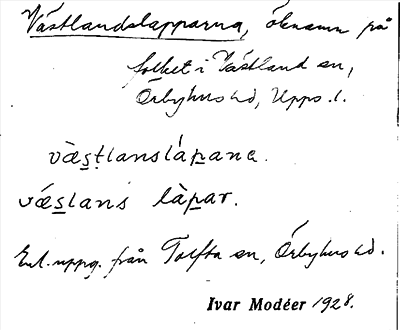 Västlandslapparna, öknamn på
folket i Västland sn,
Örbyhus hd, Upps. l.
væ̀s̱ṭlansláp̱ana.
vǽs̱lans làp̱ar.
Enl. uppg. från Tolfta sn, Örbyhus hd.
Ivar Modéer 1928.